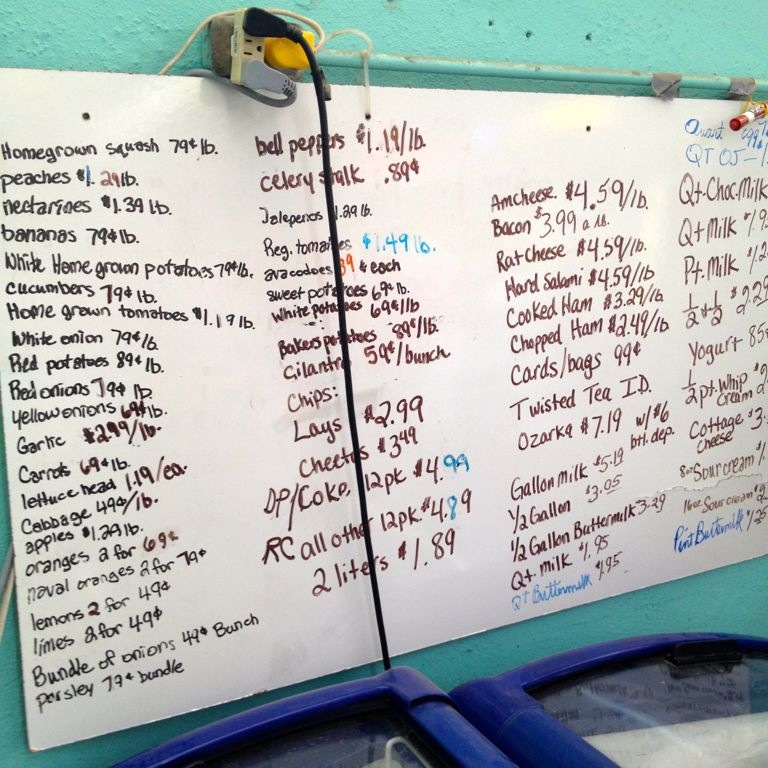 Homegrown squash 79¢ lb.
peaches $1.29 lb.
nectarines $1.39 lb.
bananas 79¢ lb.
White Home grown potatoes 79¢ lb.
cucumbers 79¢ lb.
Home grown tomatoes $1.19 lb.
White onion 79¢/lb.
Red potatoes 89¢ lb.
Red onions 79¢ lb.
yellow onions 69¢ lb.
Garlic $2.99/lb.
Carrots 69¢ lb.
lettuce head 1.19/ea.
Cabbage 49¢/lb.
apples $1.29 lb.
oranges 2 for 69¢
naval oranges 2 for 79¢
lemons 2 for 49¢
limes 2 for 49¢
Bundle of onions 49¢ Bunch
parsley 79¢ bundle
bell peppers $1.19/lb.
celery stalk .89¢
Jalepenos 1.29 lb.
Reg. tomatoes $1.49 lb.
avacodoes 89¢ each
sweet potatoes 69¢ lb.
White potatoes 69¢/lb
Bakers potatoes 89¢/lb.
Cilantro 59¢/bunch
Chips:
Lays $2.99
Cheetos $3.49
DP/Coke, 12pk $4.99
RC all other 12pk. $4.89
2 liters $1.89
Am cheese. $4.59/lb.
Bacon $3.99 a lb.
Rat Cheese $4.59/lb.
Hard Salami $4.59/lb.
Cooked Ham $3.29/lb.
Chopped Ham $2.49/lb.
Cards/bags 99¢
Twisted Tea I.D.
Ozarka $7.19 w/$6 btl. dep.
Gallon milk $5.19
1/2 Gallon $3.05
1/2 Gallon Buttermilk 3.29
Qt. milk $1.95
QT Buttermilk $1.95
Quart
QT OJ
Qt. Choc. Milk
Qt Milk
Pt. Milk
1/2 + 1/2 $2.29
Yogurt 85
1/2 pt. Whip Cream
Cottage Cheese $3.
8oz Sour cream
16oz Sour cream
Pint Buttermilk $1.25